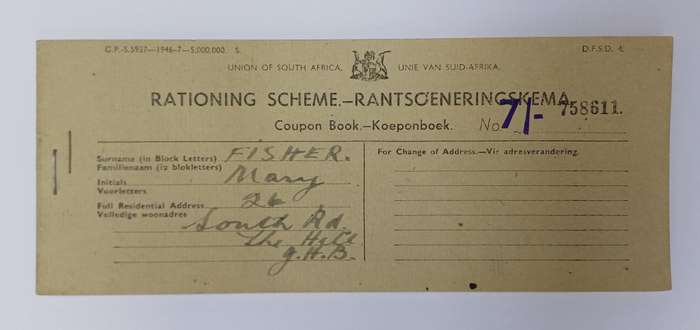 G.P.-S.5937—1946-7—5,000,000. S.
D.F.S.D. 4.
UNION OF SOUTH AFRICA. UNIE VAN SUID-AFRIKA.
RATIONING SCHEME.—RANTSOENERINGSKEMA.
Coupon Book.—Koeponboek. No. 7/- 758611.
Surname (in Block Letters) FISHER.
Familienaam (in blokletters)
Initials Mary
Voorletters
Full Residential Address 26
Volledige woonadres South Rd.
The Hill
G.H.B.
For Change of Address.—Vir adresverandering.